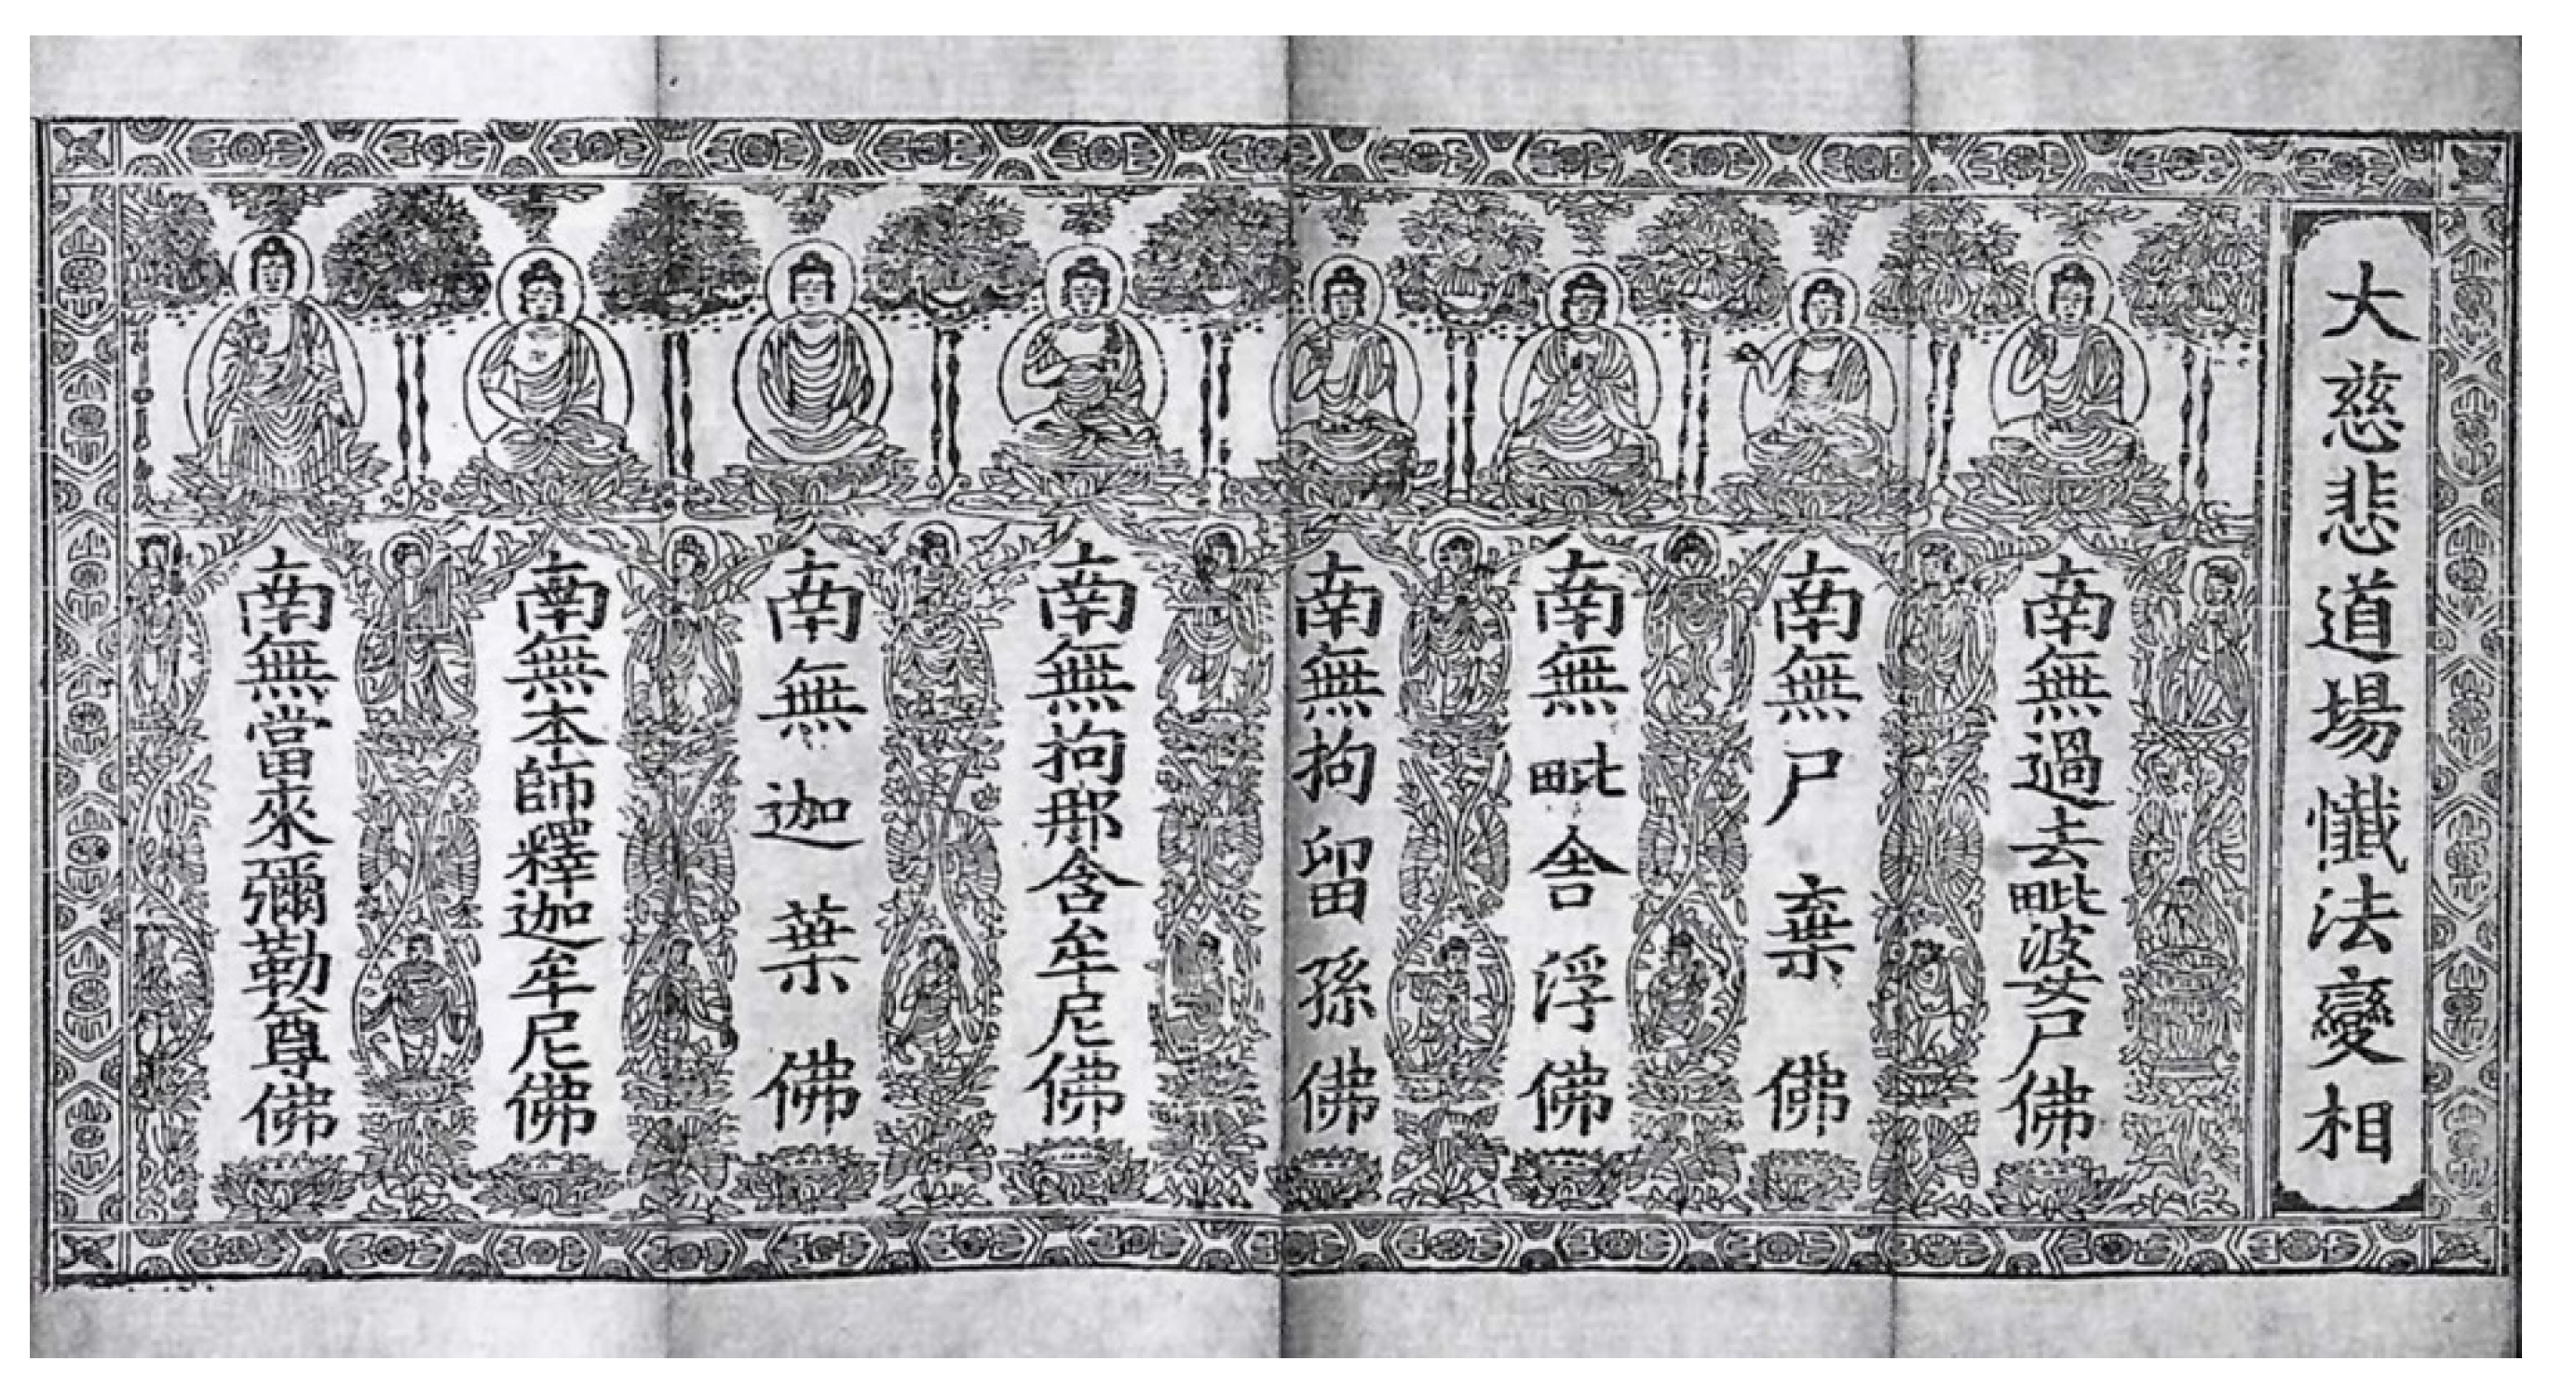 大慈悲道場懺法變相
南無過去毗婆尸佛
南無尸棄佛
南無毗舍浮佛
南無拘留孫佛
南無拘那含牟尼佛
南無迦葉佛
南無本師釋迦牟尼佛
南無當來彌勒尊佛